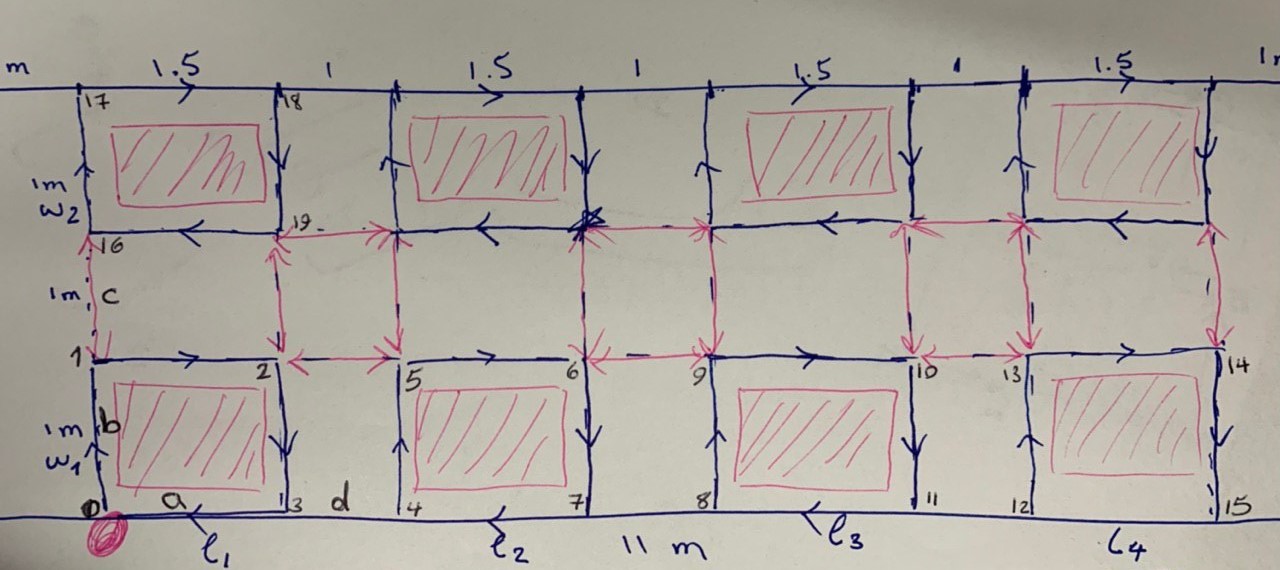 m 1.5 1 1.5 1 1.5 1 1.5 1m
17 18
1m
w2
16 19
1m c
1 2 5 6 9 10 13 14
1m b
w1
0 a 3 d 4 7 8 11 12 15
l1 l2 11 m l3 l4